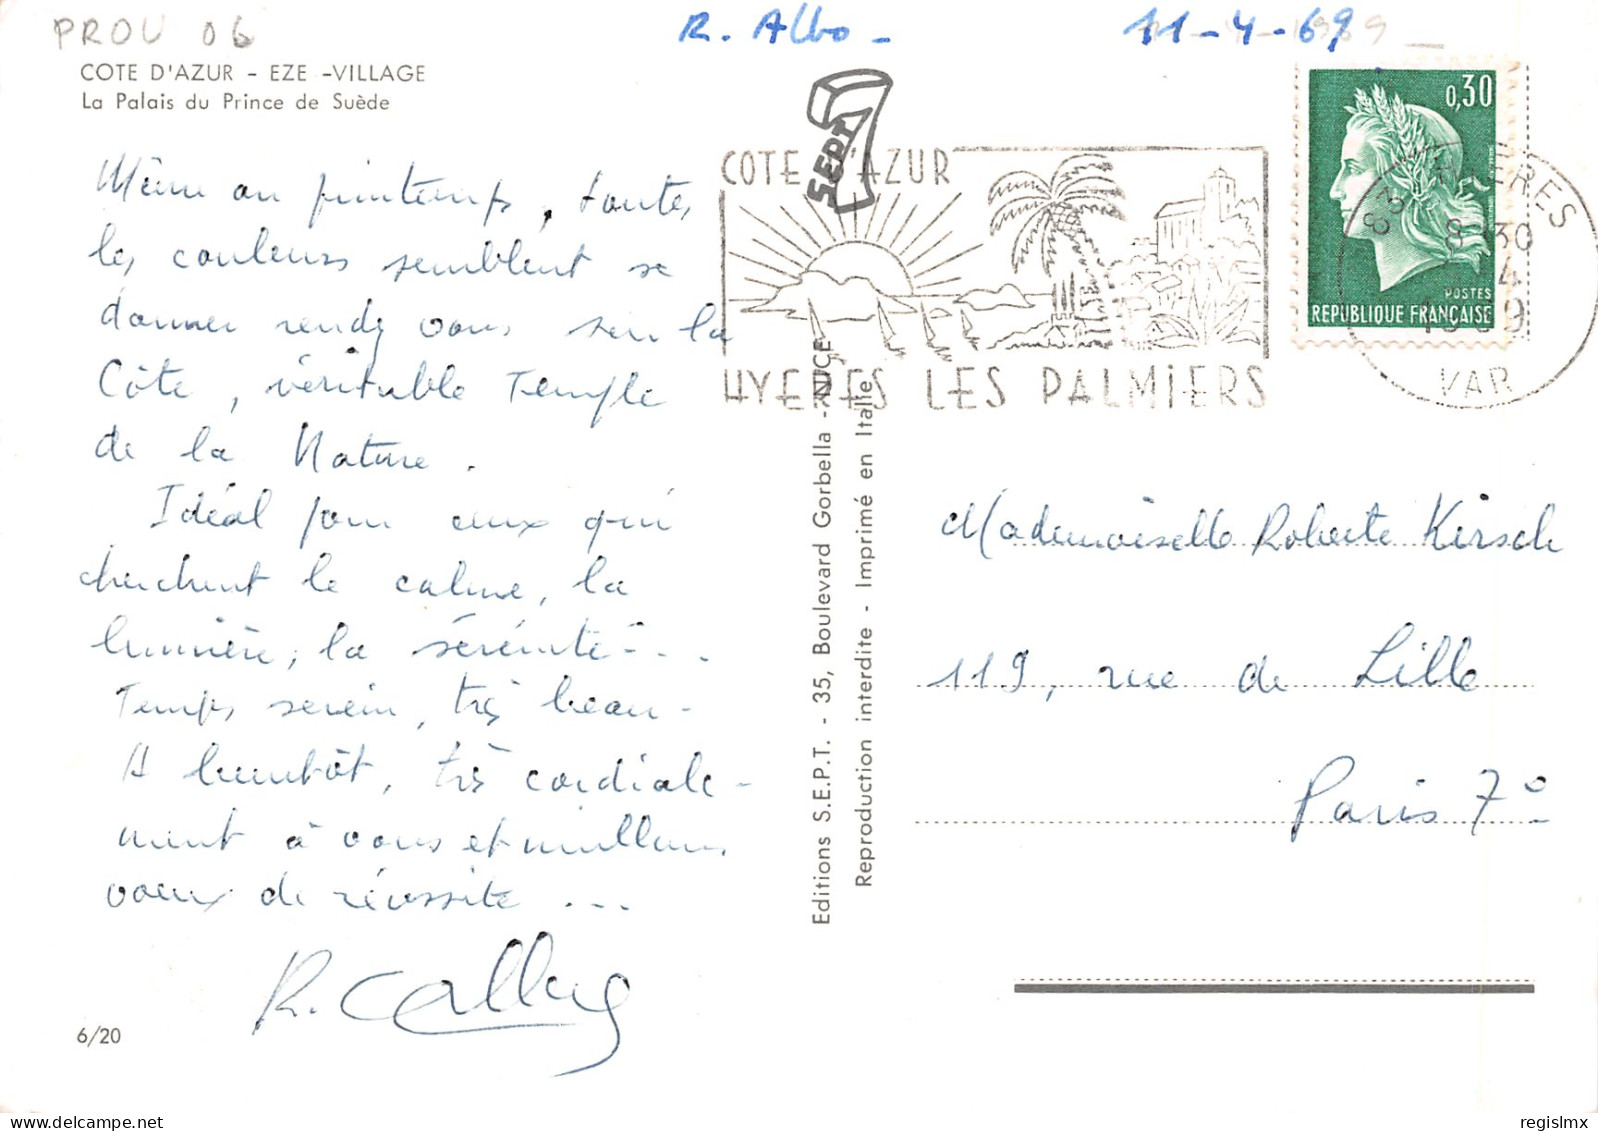 PROU 06
R. Albo - 11-4-69
COTE D'AZUR - EZE -VILLAGE
La Palais du Prince de Suède
Même au printemps, toutes
les couleurs semblent se
donner rendez vous sur la
Côte, véritable Temple
de la Nature.
Idéal pour ceux qui
cherchent le calme, la
lumière, la sérénité - . .
Temps serein, très beau -
A bientôt, très cordiale-
ment à vous et meilleurs
voeux de réussite ...
R. Callug
6/20
SEPT
COTE D'AZUR
HYERES LES PALMIERS
Editions S.E.P.T. - 35, Boulevard Gorbella - NICE
Reproduction interdite - Imprimé en Italie
0,30
POSTES
REPUBLIQUE FRANÇAISE
83 HYERES
8 30
4
1969
VAR
Mademoiselle Roberte Kirsch
119, rue de Lille
Paris 7°
regislmx